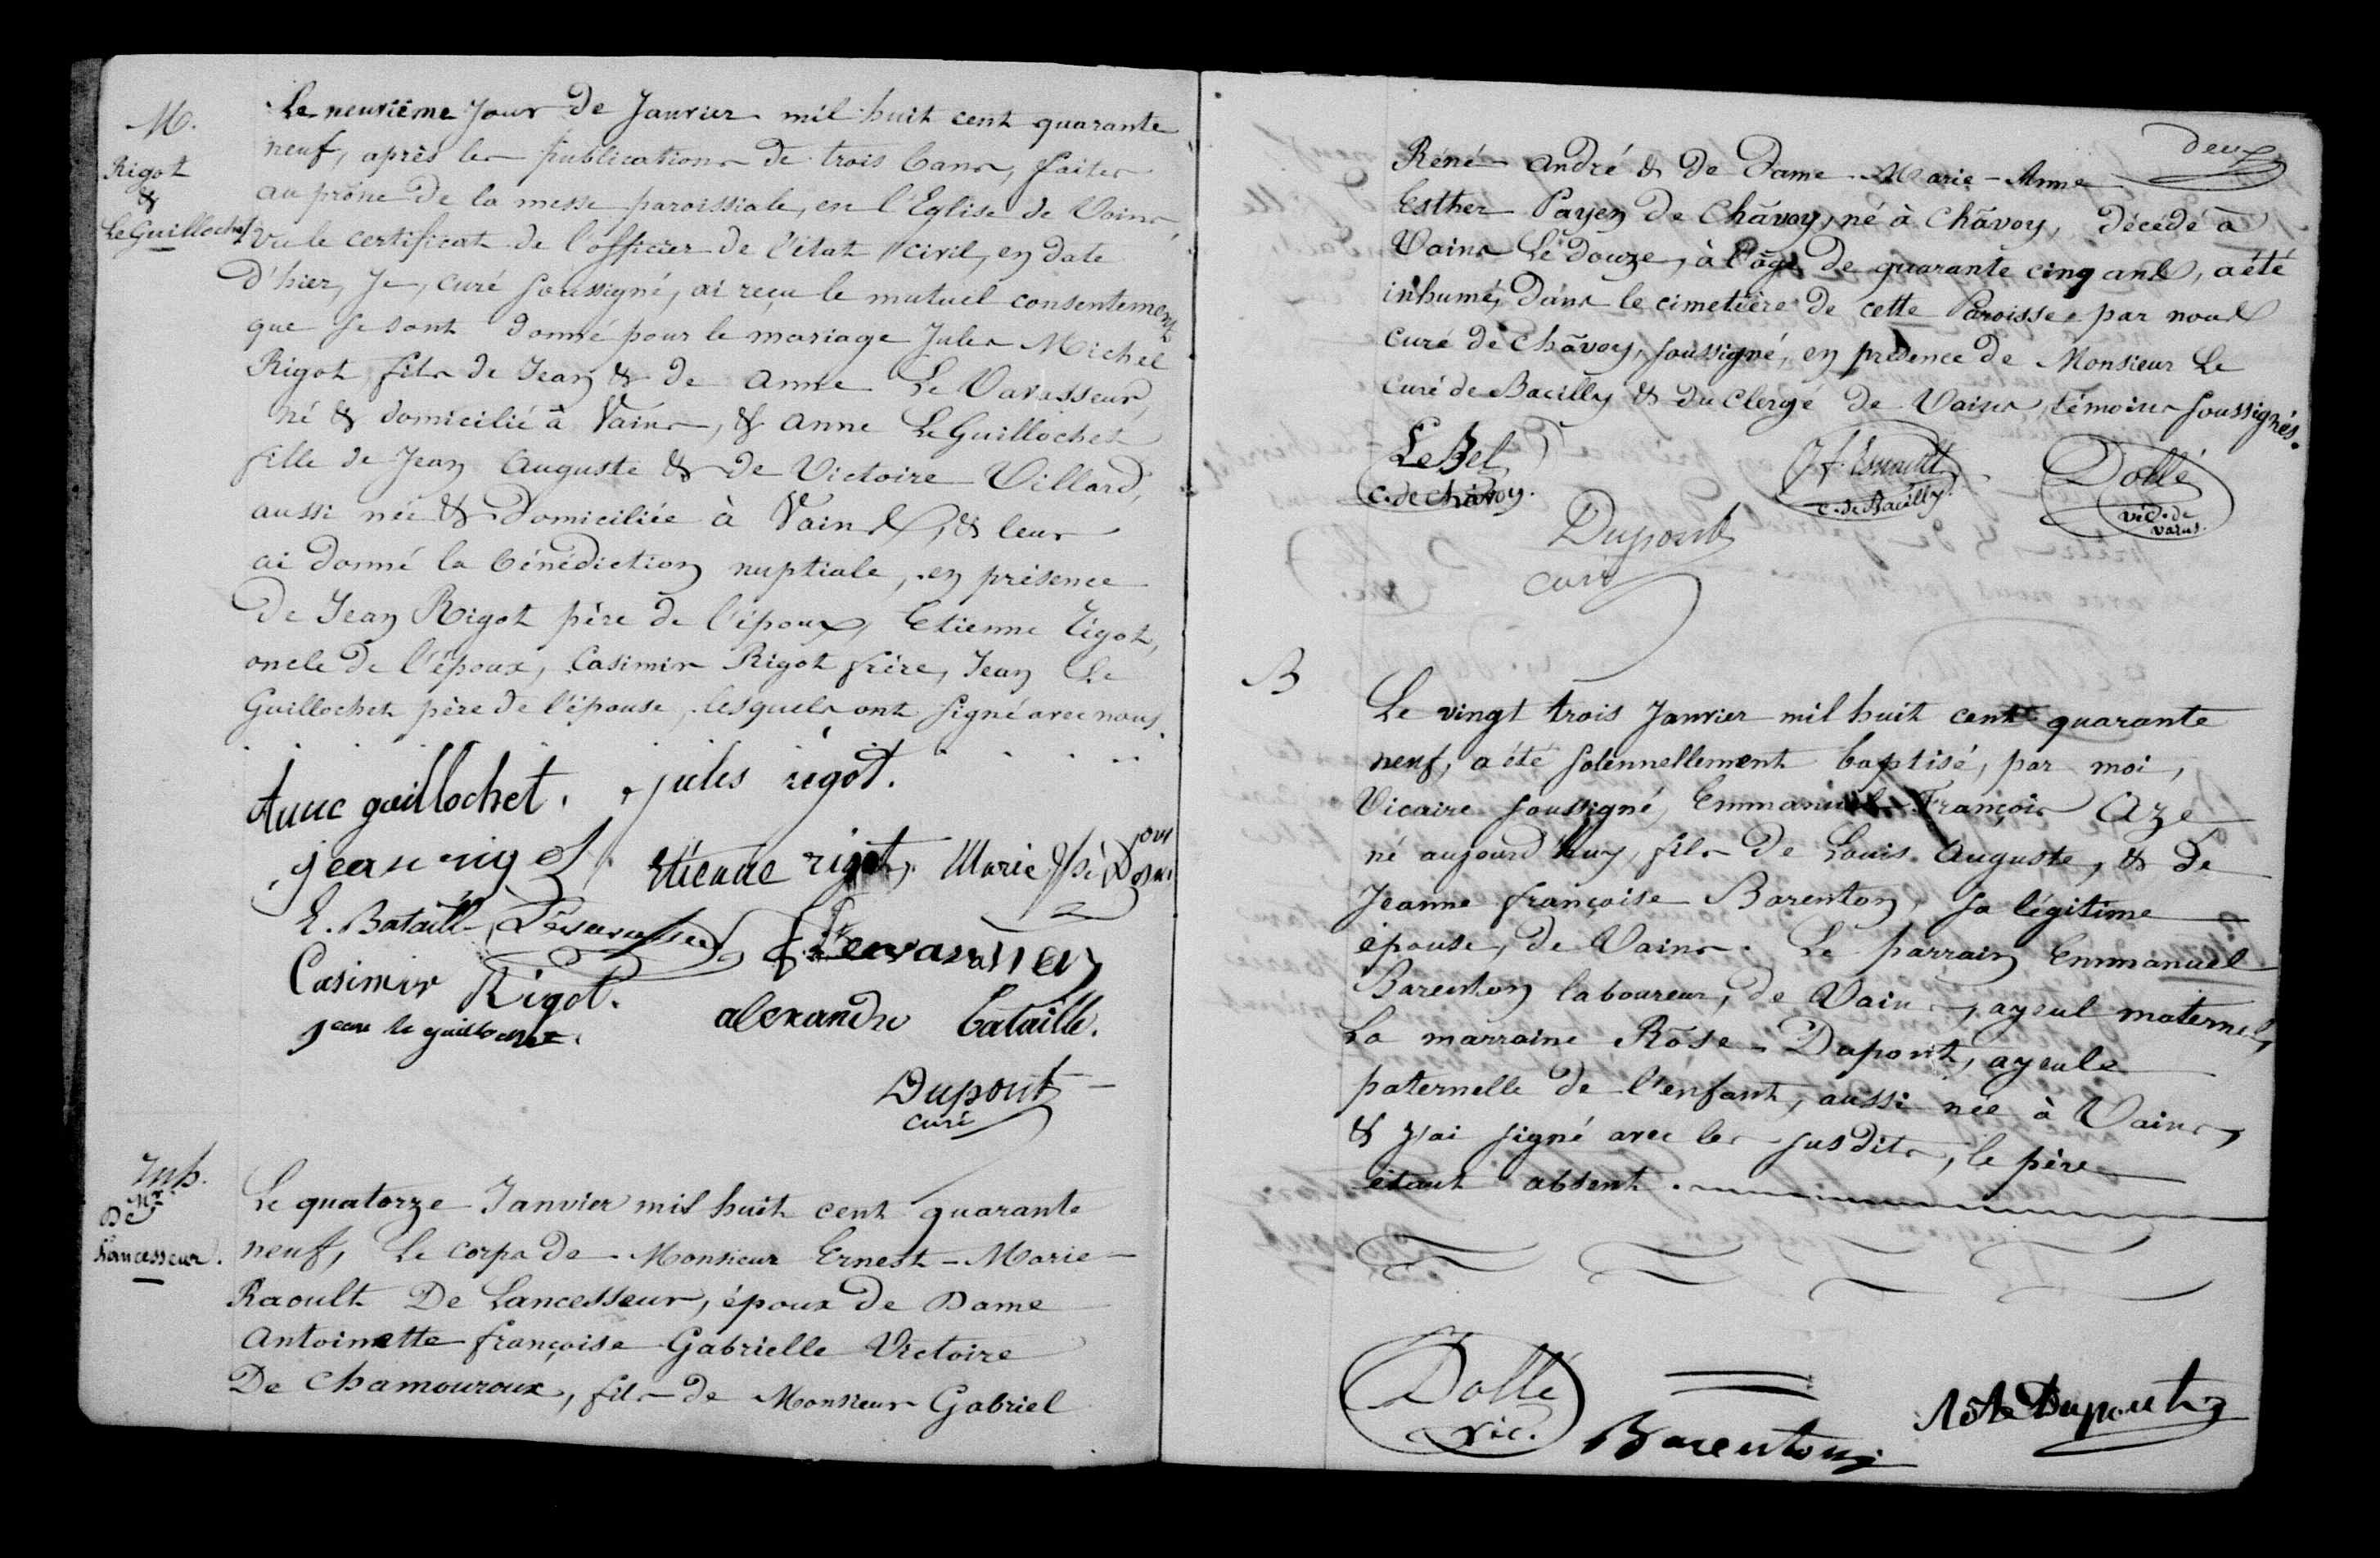 M.
Rigot
&
Le Guillochet
Le neuvième Jour de Janvier mil huit cent quarante
neuf, après les publications de trois bans, faites
au prône de la messe paroissiale, en l'Eglise de Vains,
vu le certificat de l'officier de l'état civil, en date
d'hier, Je, curé soussigné, ai reçu le mutuel consentement
que se sont donné pour le mariage Jules Michel
Rigot fils de Jean & de Anne Le Vavasseur,
né & domicilié à Vains, & Anne Le Guillochet
fille de Jean Auguste & de Victoire Villard,
aussi née & Domiciliée à Vains, & leur
ai donné la bénédiction nuptiale, en présence
de Jean Rigot père de l'époux, Etienne Rigot,
oncle de l'époux, Casimir Rigot frère, Jean Le
Guillochet père de l'épouse, lesquels ont signé avec nous.
Anne guillochet. jules rigot.
jean rigot. Etienne rigot, Marie
E. Bataille Levavasseur
Casimir Rigot.
jean le guillochet. alexandre bataille.
Dupont
curé
Inh.
Mr
De
Lancesseur.
Le quatorze Janvier mil huit cent quarante
neuf, Le corps de Monsieur Ernest-Marie
Raoult De Lancesseur, époux de Dame
Antoinette françoise Gabrielle Victoire
De Chamouroux, fils de Monsieur Gabriel
deux
Réné André & de Dame Marie-Anne
Esther Payen de Châvoy, né à Châvoy, décédé à
Vains Le douze, à l'âge de quarante cinq ans, a été
inhumé, dans le cimetière de cette Paroisse par nous
curé de Châvoy, soussigné, en présence de Monsieur Le
Curé de Bacilly & du Clergé de Vains, témoins soussignés.
LeBel
c. de Châvoy.
c. de Bacilly.
Dollé
vic. de
Vains.
Dupont
curé
B
Le vingt trois Janvier mil huit cent quarante
neuf, a été solennellement baptisé, par moi,
Vicaire soussigné, Emmanuel François Aze
né aujourd'huy, fils de Louis Auguste, & de
Jeanne françoise Barenton, sa légitime
épouse, de Vains. Le parrain Emmanuel
Barenton laboureur, de Vains, ayeul maternel,
La marraine Rose Dupont, ayeule
paternelle de l'enfant, aussi née à Vains,
& j'ai signé avec les susdits, le père
étant absent.
Dollé
vic.
Barenton
Rose Dupont